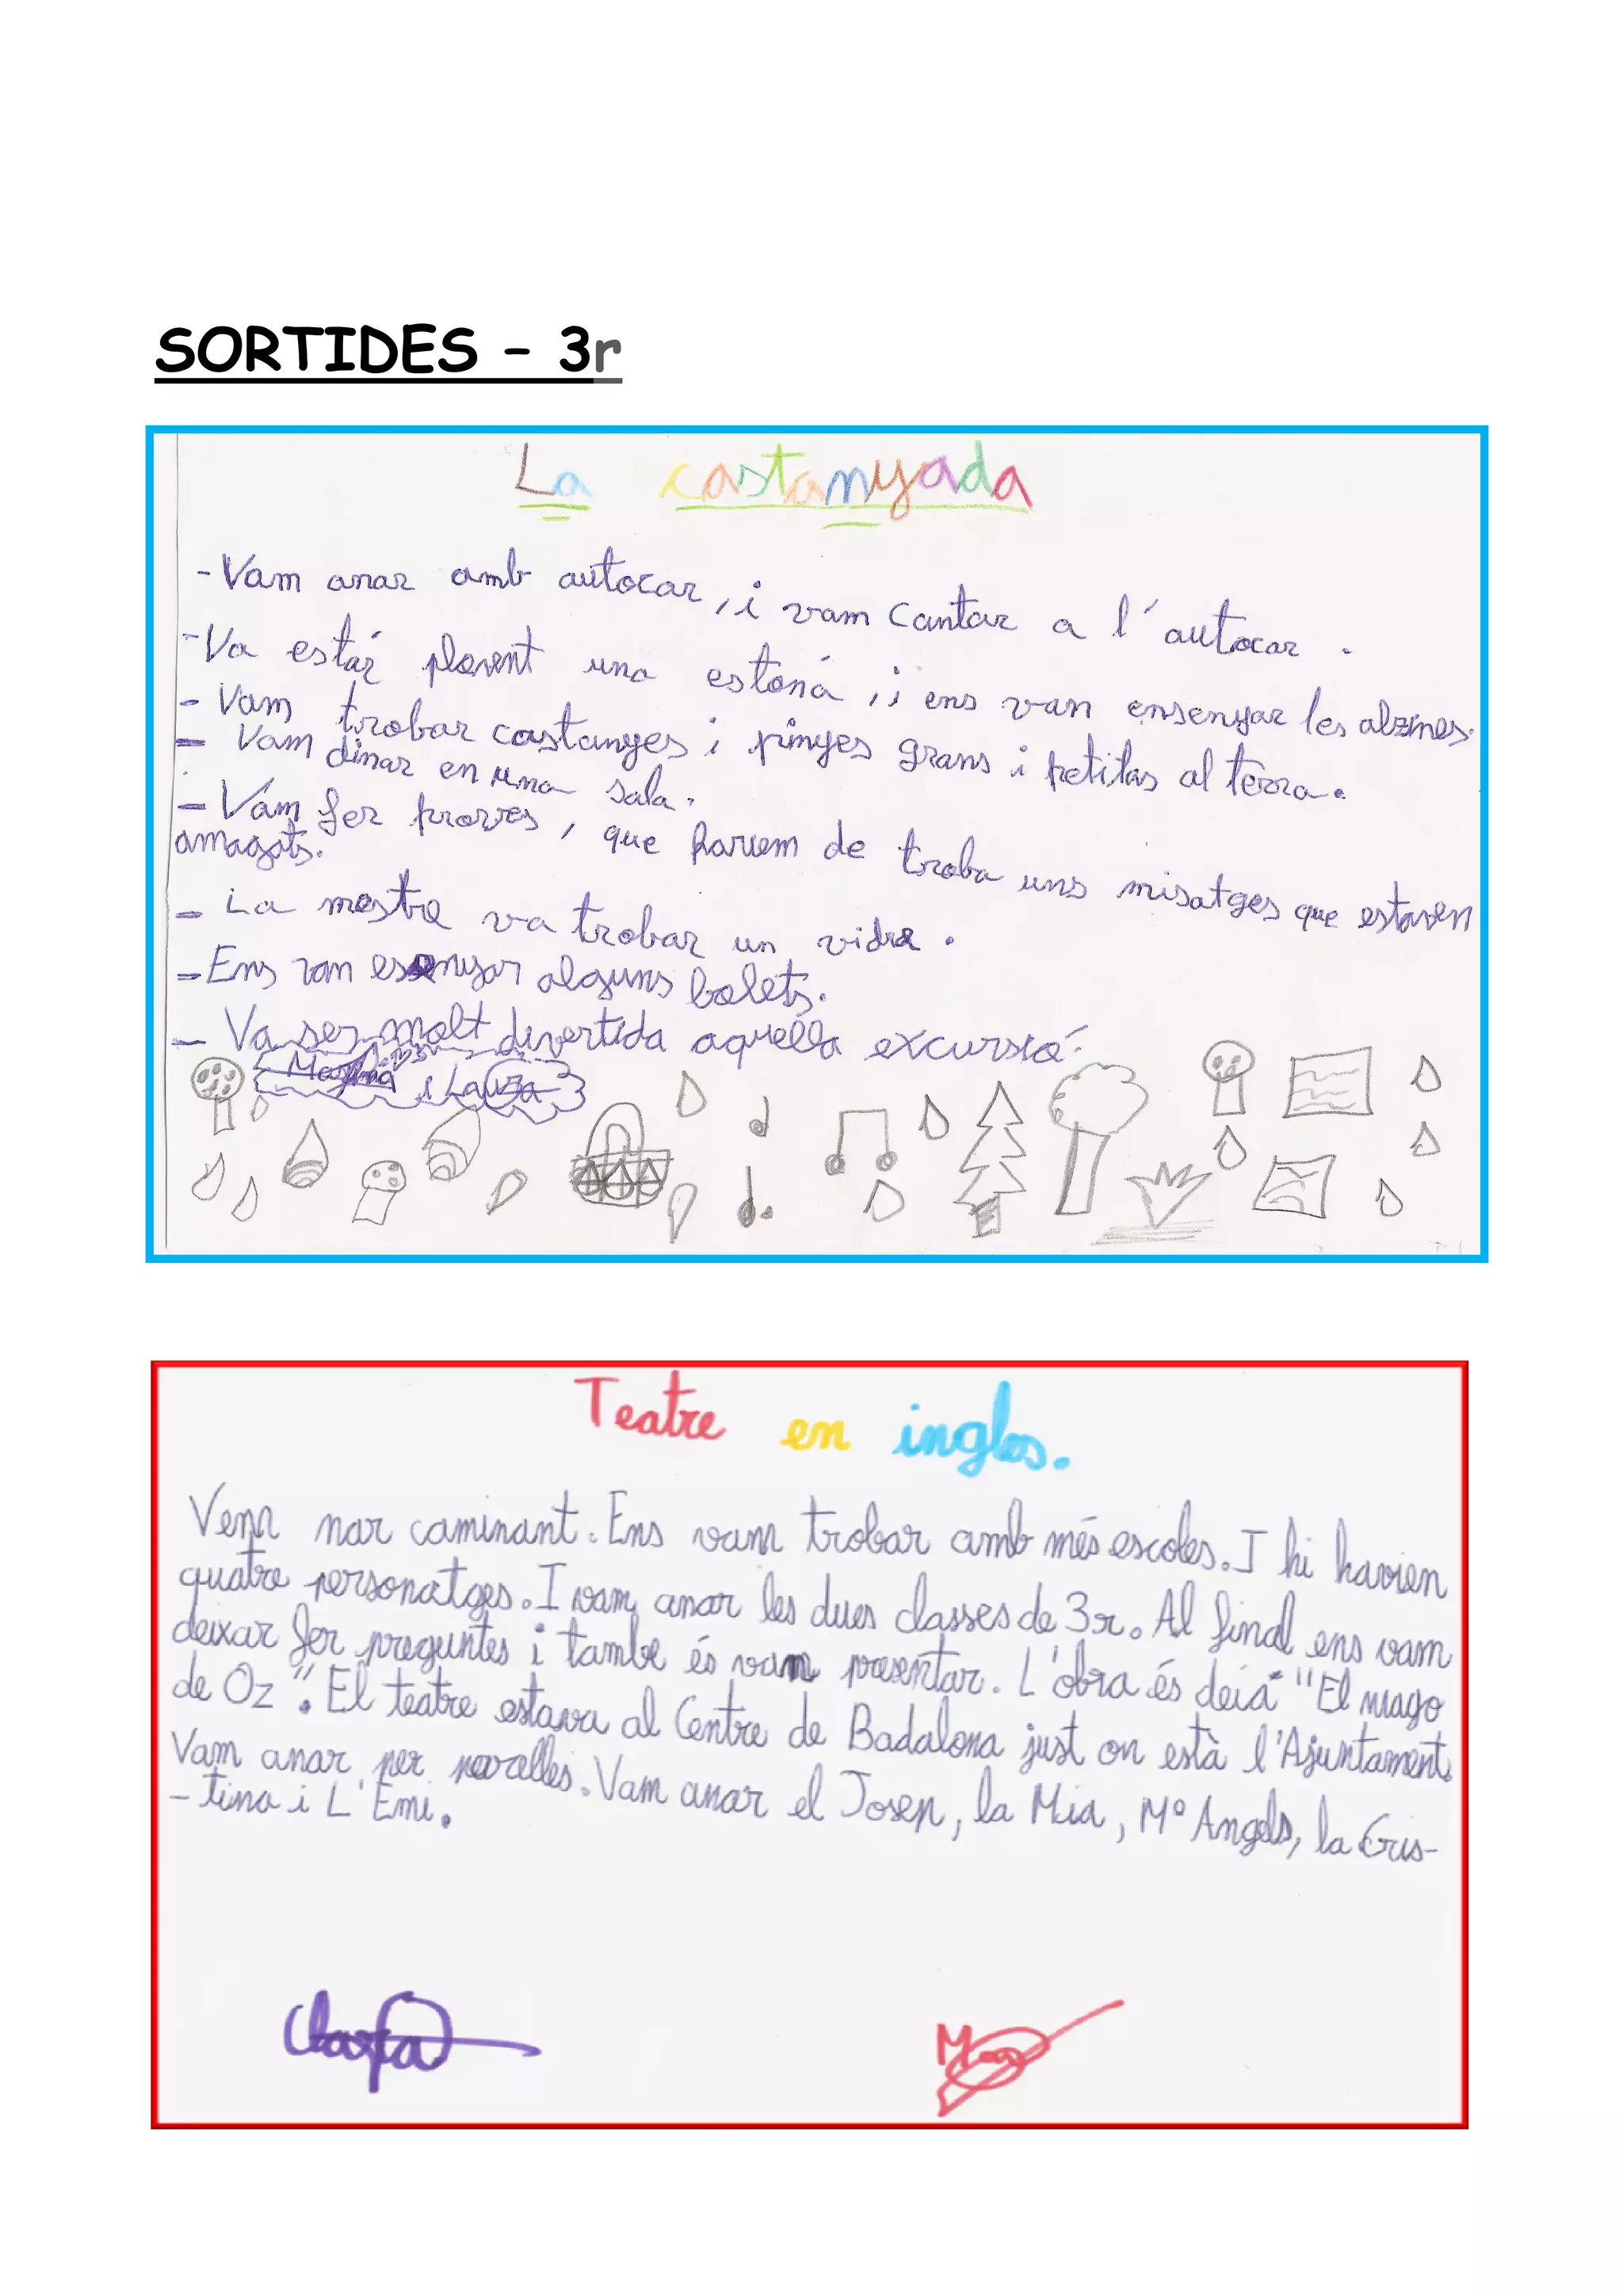 SORTIDES - 3r
La castanyada
- Vam anar amb autocar, i vam cantar a l'autocar.
- Va estár plovent una estona, i ens van ensenyar les alzines.
- Vam trobar castanyes i pinyes grans i petitas al terra.
- Vam dinar en una sala.
- Vam fer proves, que havíem de troba uns misatges que estaven
amagats.
- La mestra va trobar un vidre.
- Ens van esenyar alguns bolets.
- Va ser molt divertida aquella excursió.
i Laura
Teatre en ingles.
Vem nar caminant. Ens vam trobar amb més escoles. I hi havien
quatre personatges. I vam anar les dues classes de 3r. Al final ens vam
deixar fer preguntes i tambe és van presentar. L'obra és deiá "El mago
de Oz". El teatre estava al Centre de Badalona just on està l'Ajuntament.
Vam anar per parelles. Vam anar el Josep, la Mia, Mº Angels, la Cris-
-tina i L'Emi.